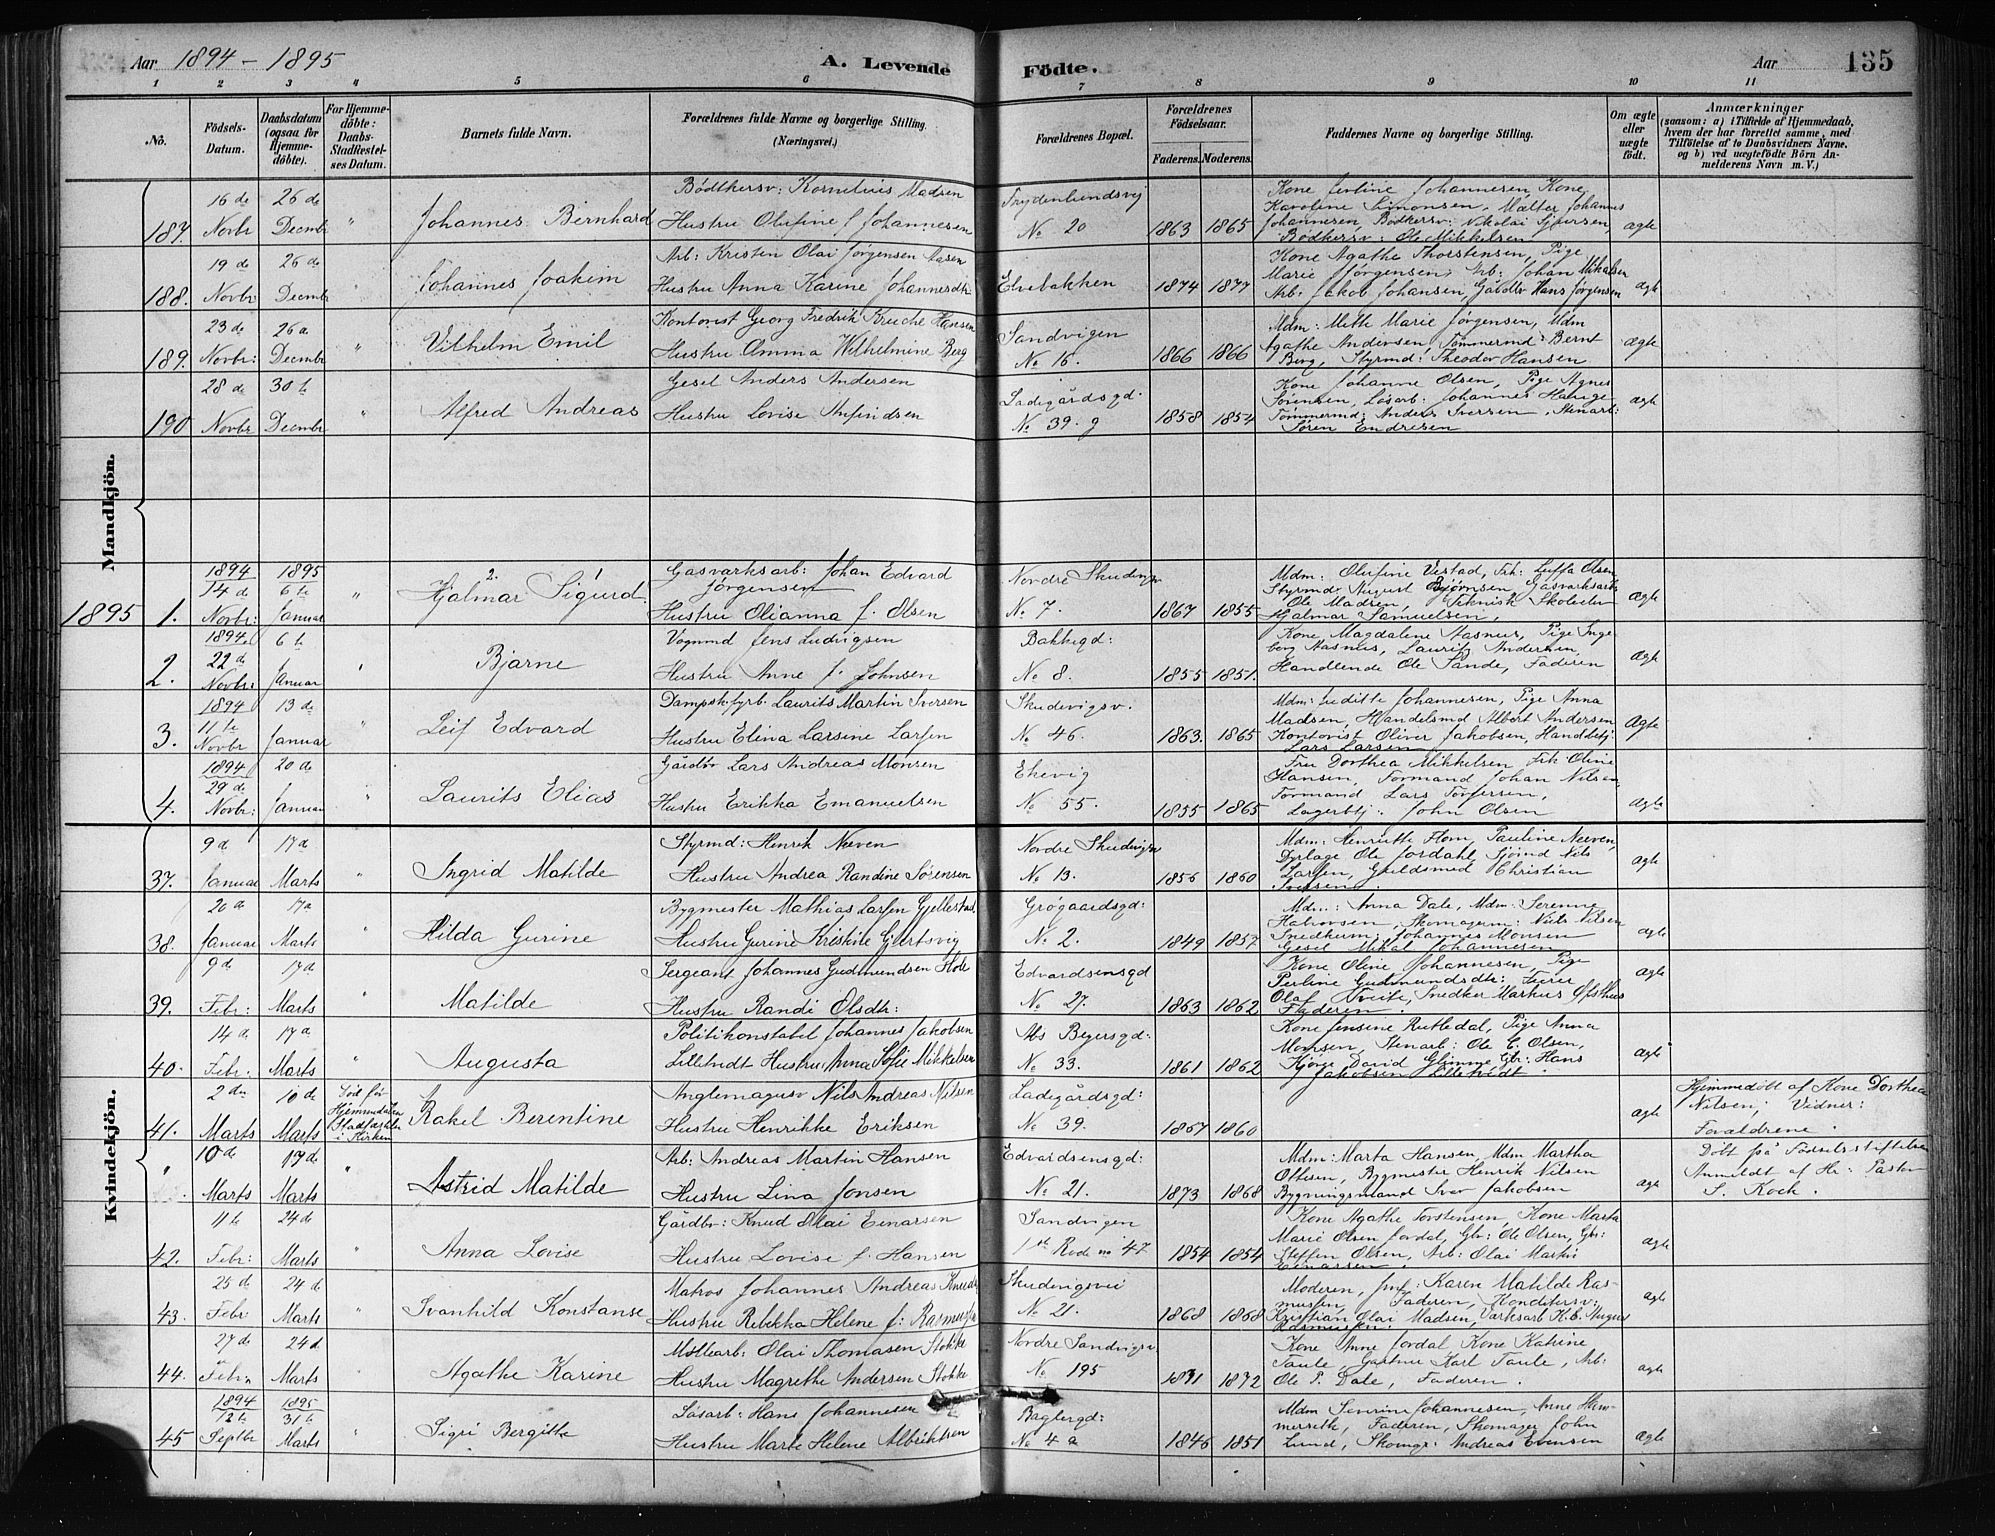 Aar 1894 - 1895
A. Levende Födte.
Aar
135
1 2 3 4 5 6 7 8 9 10 11
No.
Födsels-Datum.
Daabsdatum (ogsaa for Hjemmedöbte).
For Hjemmedöbte: Daabs-Stadfæstelses Datum.
Barnets fulde Navn.
Forældrenes fulde Navne og borgerlige Stilling.
(Næringsvei.)
Forældrenes Bopæl.
Forældrenes Födselsaar.
Faderens. Moderens.
Faddernes Navne og borgerlige Stilling.
Om ægte eller uægte födt.
Anmærkninger
(saasom: a) i Tilfælde af Hjemmedaab,
hvem der har forrettet samme, med
Tilföielse af to Daabsvidners Navne.
og b) ved uægtefödte Börn Anmelderens Navn m. V.)
Mandkjön.
187. 16 de Novbr 26 de Decmbr " Johannes Bernhard
Bödkersv: Kornelius Madsen
Hustru Olufine f. Johannesen
Frydenlundsvej
No 20 1863 1865
Karoline Simonsen, Mælter Johannes
Johannesen, Bödkersv: Nikolai
Bödkersv: Ole Mikkelsen
ægte
188. 19 de Novbr 26 de Decmbr " Johannes Joakim
Arb: Kristen Olai Jørgensen Aasen
Hustru Anna Karine Johannesdtr
Elvebakken 1874 1877
Kone Agathe Thorstensen, Pige
Marie Jørgensen, Arb: Johan Mikalsen
Arb: Jakob Johansen, Gårdbr Hans Jørgensen
ægte
189. 23 de Novbr: 26 d Decmbr " Vilhelm Emil
Kontorist Georg Fredrik Hansen
Hustru Amma Wilhelmine Berg
Sandvigen
No 15. 1866 1866
Mdm: Mette Marie Jørgensen, Mdm
Agathe Andersen, Tømmermd: Bernt
Berg, Styrmd: Theodor Hansen
ægte
190 28 de Novbr 30 te Decmbr " Alfred Andreas
Gesel Anders Andersen
Hustru Lovise Anfindsen
Ladegårdsgd.
No 39. g 1858 1854
Kone Johanne Olsen, Pige Agnes
Sørensen, Løsarb: Johannes Hauge
Tømmermd: Anders Iversen, Stenarb:
Søren Endresen
ægte
1895 1. 1894 14 de Novbr: 1895 6 te Januar " 2. Hjalmar 1 Sigurd
Gasværksarb: Johan Edvard
Jörgensen
Hustru Olianna f. Olsen
Nordre Skudevigsv
No 7. 1867 1855
Mdm: Olufine Vestad, Frk:
Styrmd: August Bjørnsen, Gasværksarb:
Ole Madsen, Teknisk Skoleelev
Hjalmar Samuelsen.
ægte
2. 1894. 22 de Novbr: 6 te Januar " Bjarne
Vognmd Jens Ludvigsen
Hustru Anne f. Johnsen
Bakkegd:
No 8. 1855 1851.
Kone Magdalene Aasnes, Pige Ingeberg
Aasnes, Laurits Andersen
Handlende Ole Sande, Faderen
ægte
3. 1894 11 te Novbr 13 de Januar " Leif Edvard
Dampskfyrb. Laurits Martin Iversen
Hustru Elina Larsine Larsen
Skudevigsv.
No 46. 1863. 1865
Mdm: Juditte Johannesen, Pige Anna
Madsen, Handelsmd Albert Andersen
Kontorist Oliver Jakobsen, Handelsbtj.
Lars Larsen
Ægte
4. 1894 29 de Novbr: 20 de Januar " Laurits Elias
Gårdbr Lars Andreas Monsen
Hustru Erikka Emanuelsen
Ekevig
No 55. 1855 1865
Fru Dorthea Mikkelsen, Frk Oline
Hansen, Formand Johan Nilsen
Formand Lars Torfersen,
Lagerbtj. John Olsen
ægte
Kvindekjön.
37. 9 d Januar 17 d Marts " Ingrid Matilde
Styrmd: Henrik Næven
Hustru Andrea Randine Sørensen
Nordre Skudevigsv
No 13. 1856 1860
Mdm: Henriette Hom, Pauline Neeven,
Dyrlæge Ole Jordahl, Nils
Larsen, Guldsmed Christian
Iversen.
ægte
38. 20 d Januar 17 d Marts " Hilda Gurine
Bygmester Mathias Larsen Gjellestad
Hustru Gurine Kristine Gjertsvig
Grögaardsgd:
No 2. 1849 1857
Mdm: Anna Dale, Mdm: Serenne
Halvorsen, Skomagerm: Niels Nilsen
Snedkerm: Johannes Monsen
Gesel Mikal Johannesen
ægte
39. 9 d. Febr: 17 d Marts " Matilde
Sergeant Johannes Gudmundsen Hole
Hustru Randi Olsdtr:
Edvardsensgd
No 27. 1863 1862
Kone Oline Johannesen, Pige
Perline Gudmundsdtr:
Olaf Tveite, Snedker Markus Ofsthus
Faderen.
ægte
40. 14 d Febr. 17 d Marts " Augusta
Politikonstabel Johannes Jakobsen
Lilletvedt Hustru Anna Sofie Mikkelsen
Abs Beyersgd:
No 33. 1861 1862
Kone Jensine Rutledal, Pige Anna
Monsen, Stenarb: Ole C. Olsen,
David Glimme Gbr: Hans
Jakobsen Lilletvedt.
ægte
41. 2 den Marts 10 de Marts Död før Hjemmedåben Stadfæstedes i Kirken Rakel Berentine
Anglemagersv Nils Andreas Nilsen
Hustru Henrikke Eriksen
Ladegårdsgd:
No 39. 1867 1860
ægte
Hjemmedöbt af Kone Dorthea
Nilsen; Vidner:
Forældrene.
" 10 d Marts 17 d. Marts " Astrid Matilde
Arb: Andreas Martin Hansen
Hustru Lina Jonsen
Edvardsensgd:
No 21. 1873 1868
Mdm: Marta Hansen, Mdm Martha
Ottesen, Bygmester Henrik Nilsen
Bygningsmand Iver Jakobsen
ægte
Döbt på Födselsstiftelsen
Anmeldt af Hr: Pastor
S. Koch.
42. 11 te Febr: 24 de Marts " Anna Lovise
Gårdbr: Knud Olai Einarsen
Hustru Lovise f. Hansen
Sandvigen
1ste Rode no 47 1854 1854
Kone Agathe Torstensen, Kone Marta
Marie Olsen Jordal, Gbr: Ole Olsen, Gbr:
Steffen Olsen, Arb: Olai Martin
Einarsen.
ægte
43. 25 d Febr 24 de Marts " Svanhild Konstanse
Matros Johannes Andreas Knudsen
Hustru Rebekka Helene f: Rasmussen
Skudevigsvei
No 21. 1868 1868
Moderen, Karen Matilde Rasmussen,
Faderen, Konditorsv:
Kristian Olai Madsen, Værksarb K. B. August
Rasmussen.
ægte
44. 27 de Febr. 24 d Marts " Agathe Karine
Möllearb: Olai Thomasen Stokke
Hustru Magrethe Andersen Stokke
Nordre Sandvigsv
No 195 1871 1872
Kone Anne Jordal, Kone Katrine
Taule, Gartner Karl Taule, Arb:
Ole P. Dale, Faderen.
ægte
45 1894 12 te Septbr 1895 31 te Marts " Sigri Bergitte
Løsarb: Hans Johannesen
Hustru Marte Helene Albriktsen
Baglergd:
No 4 a 1846 1851
Mdm Severine Johannesen, Anne
Faderen, Skomager John
Lund, Skomgr: Andreas Evensen
Ægte